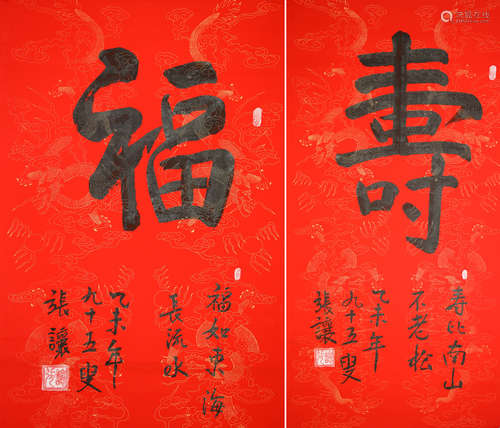 福
福如東海
長流水
乙未年
九十五叟
張讓
壽
寿比南山
不老松
乙未年
九十五叟
張讓